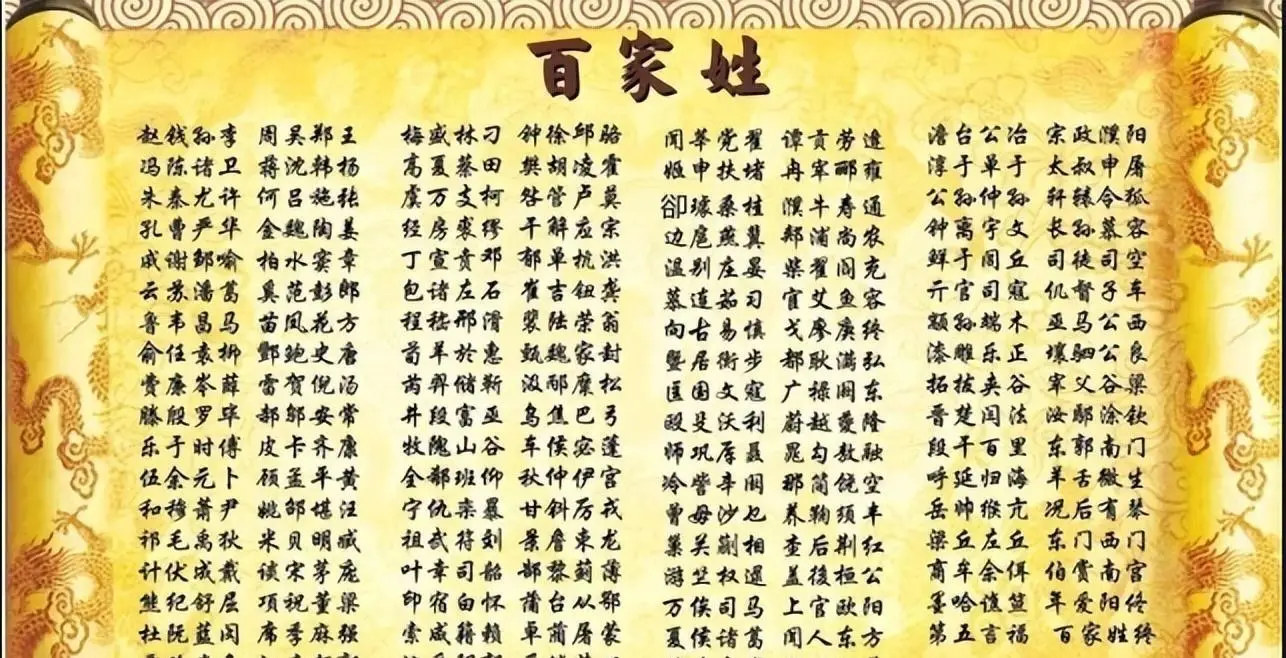 百家姓
赵钱孙李 周吴郑王
冯陈诸卫 蒋沈韩杨
朱秦尤许 何吕施张
孔曹严华 金魏陶姜
戚谢邹喻 柏水窦章
云苏潘葛 奚范彭郎
鲁韦昌马 苗凤花方
俞任袁柳 酆鲍史唐
费廉岑薛 雷贺倪汤
滕殷罗毕 郝邬安常
乐于时傅 皮卞齐康
伍余元卜 顾孟平黄
和穆萧尹 姚邵堪汪
祁毛禹狄 米贝明臧
计伏成戴 谈宋茅庞
熊纪舒屈 项祝董梁
杜阮蓝闵 席季麻强
梅盛林刁 钟徐邱骆
高夏蔡田 樊胡凌霍
虞万支柯 昝管卢莫
经房裘缪 干解应宗
丁宣贲邓 郁单杭洪
包诸左石 崔吉钮龚
程嵇邢滑 裴陆荣翁
荀羊於惠 甄魏家封
芮羿储靳 汲邴糜松
井段富巫 乌焦巴弓
牧隗山谷 车侯宓蓬
全郗班仰 秋仲伊宫
宁仇栾暴 甘斜厉戎
祖武符刘 景詹束龙
叶幸司韶 郜黎蓟薄
印宿白怀 蒲台从鄂
索咸籍赖 卓蔺屠蒙
闻莘党翟 谭贡劳逄
姬申扶堵 冉宰郦雍
卻璩桑桂 濮牛寿通
边扈燕冀 郏浦尚农
温别庄晏 柴瞿阎充
慕连茹习 宦艾鱼容
向古易慎 戈廖庚终
暨居衡步 都耿满弘
匡国文寇 广禄阙东
殴殳沃利 蔚越夔隆
师巩厍聂 晁勾敖融
冷訾辛阚 那简饶空
曾毋沙乜 养鞠须丰
巢关蒯相 查后荆红
游竺权逯 盖後桓公
万俟司马 上官欧阳
夏侯诸葛 闻人东方
澹台公冶 宗政濮阳
淳于单于 太叔申屠
公孙仲孙 轩辕令狐
钟离宇文 长孙慕容
鲜于闾丘 司徒司空
亓官司寇 仉督子车
颛孙端木 巫马公西
漆雕乐正 壤驷公良
拓拔夹谷 宰父谷梁
晋楚闫法 汝鄢涂钦
段干百里 东郭南门
呼延归海 羊舌微生
岳帅缑亢 况后有琴
梁丘左丘 东门西门
商牟佘佴 伯赏南宫
墨哈谯笪 年爱阳佟
第五言福 百家姓终